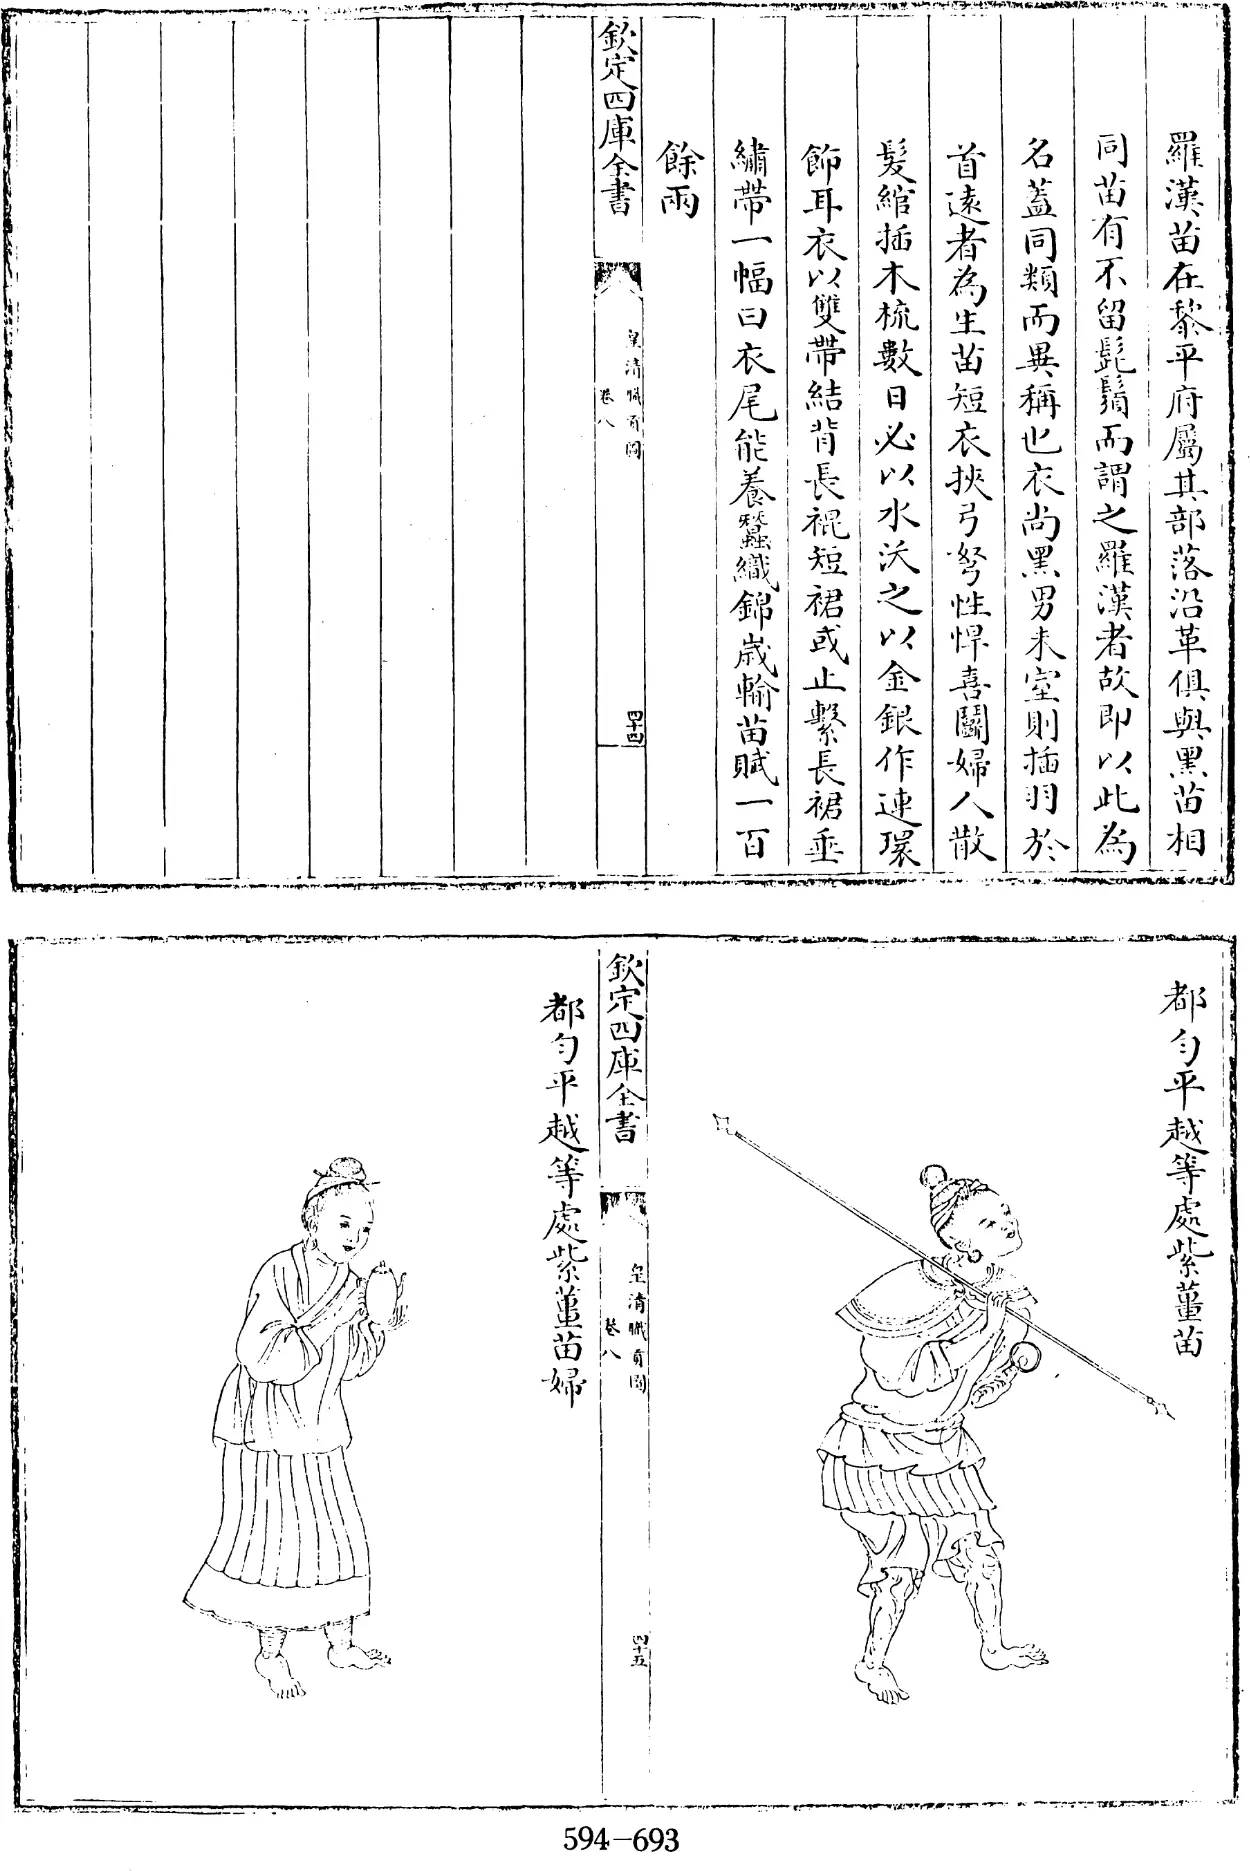 羅漢苗在黎平府屬其部落沿革俱與黑苗相
同苗有不留髭鬚而謂之羅漢者故即以此為
名蓋同類而異稱也衣尚黑男未室則插羽於
首遠者為生苗短衣挾弓弩性悍喜鬭婦人散
髮綰插木梳數日必以水沃之以金銀作連環
飾耳衣以雙帶結背長裩短裙或止繫長裙垂
繡帶一幅曰衣尾能養蠶織錦歲輸苗賦一百
餘兩
欽定四庫全書
皇清職貢圖
卷八
四十四
都勻平越等處紫薑苗
欽定四庫全書
皇清職貢圖
卷八
四十五
都勻平越等處紫薑苗婦
594-693